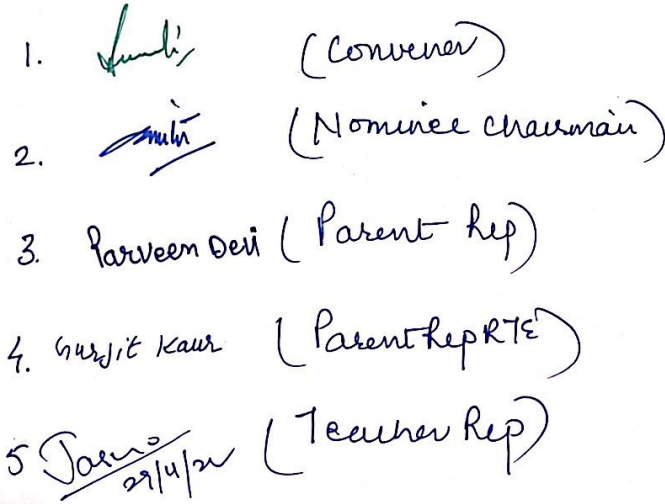 1. (Convener)
2. (Nominee Chairman)
3. Parveen Devi (Parent Rep)
4. Surjit Kaur (Parent Rep RTE)
5 (Teacher Rep)